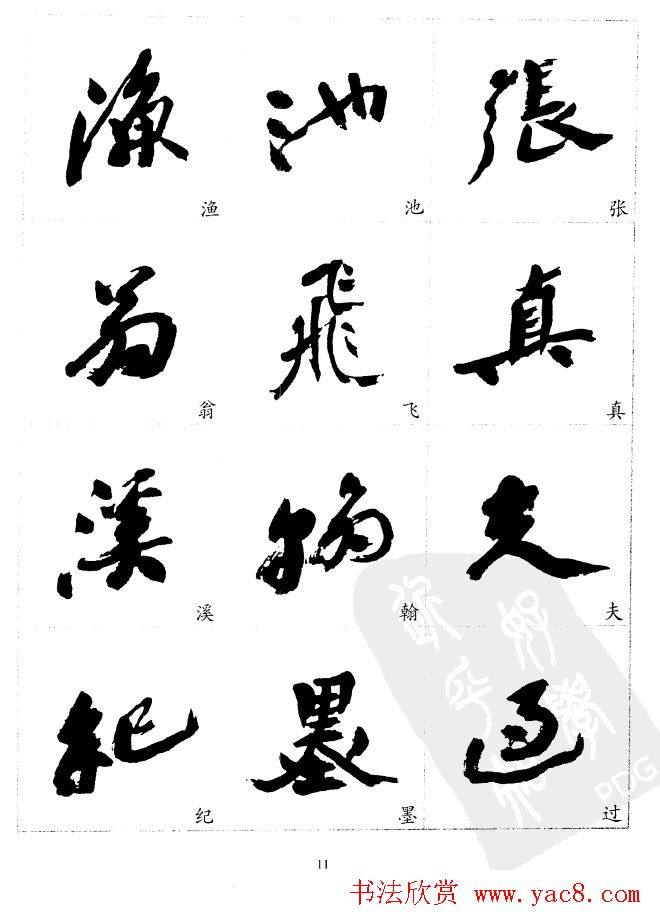 張 真 夫 過
张 真 夫 过
池 飛 翰 墨
池 飞 翰 墨
漁 翁 溪 紀
渔 翁 溪 纪
PDG
11
书法欣赏 www.yac8.com